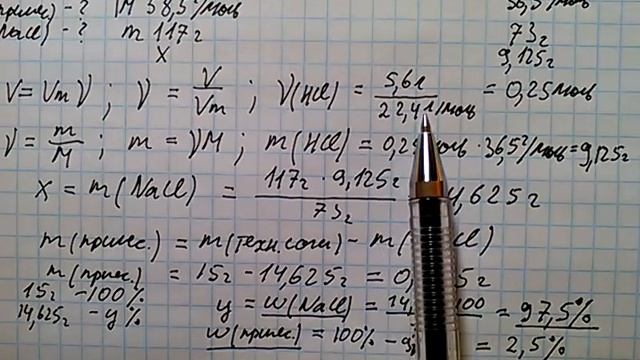 (примес.) - ? M 58,5 г/моль 36,5 г/моль
(NaCl) - ? m 117г 73г
x 9,125г
V = Vm ν ; ν = V/Vm ; ν(HCl) = 5,6л/22,4л/моль = 0,25моль
ν = m/M ; m = νM ; m(HCl) = 0,25моль · 36,5г/моль = 9,125г
x = m(NaCl) = 117г · 9,125г/73г 4,625г
m(примес.) = m(техн.соли) - m( Cl)
m(примес.) = 15г - 14,625г = 0, 5г
15г - 100%
14,625г - y% y = w(NaCl) = 14, 100 = 97,5%
w(примес.) = 100% - 9 = 2,5%